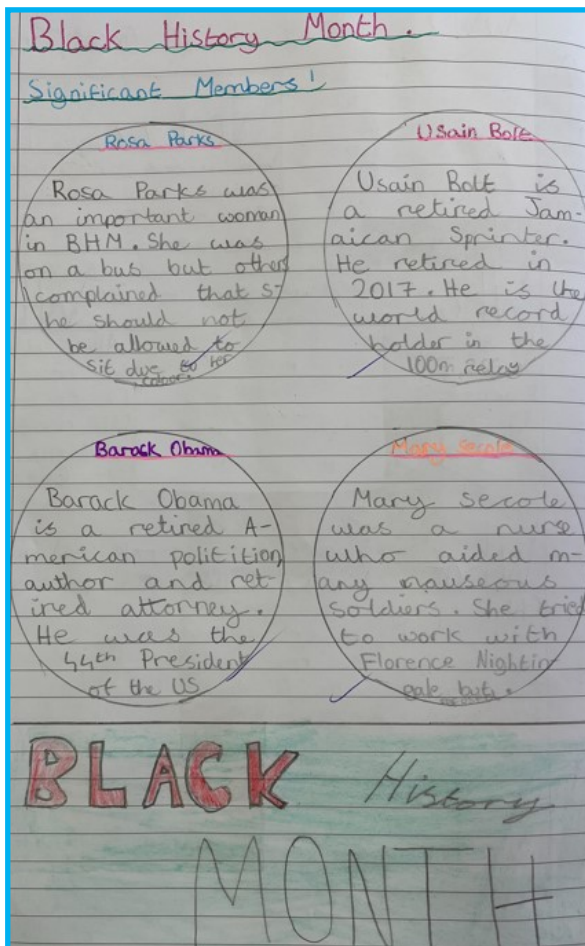 Black History Month.
Significant Members!
Rosa Parks
Rosa Parks was
an important woman
in BHM. She was
on a bus but others
complained that s-
he should not
be allowed to
sit due to her
colour.
Usain Bolt
Usain Bolt is
a retired Jam-
aican Sprinter.
He retired in
2017. He is the
world record
holder in the
100m relay
Barack Obama
Barack Obama
is a retired A-
merican politition,
author and ret-
ired attorney.
He was the
44th President
of the US
Mary Secole
Mary secole
was a nurse
who aided m-
any nauseous
soldiers. She tried
to work with
Florence Nightin
gale but
BLACK History
MONTH